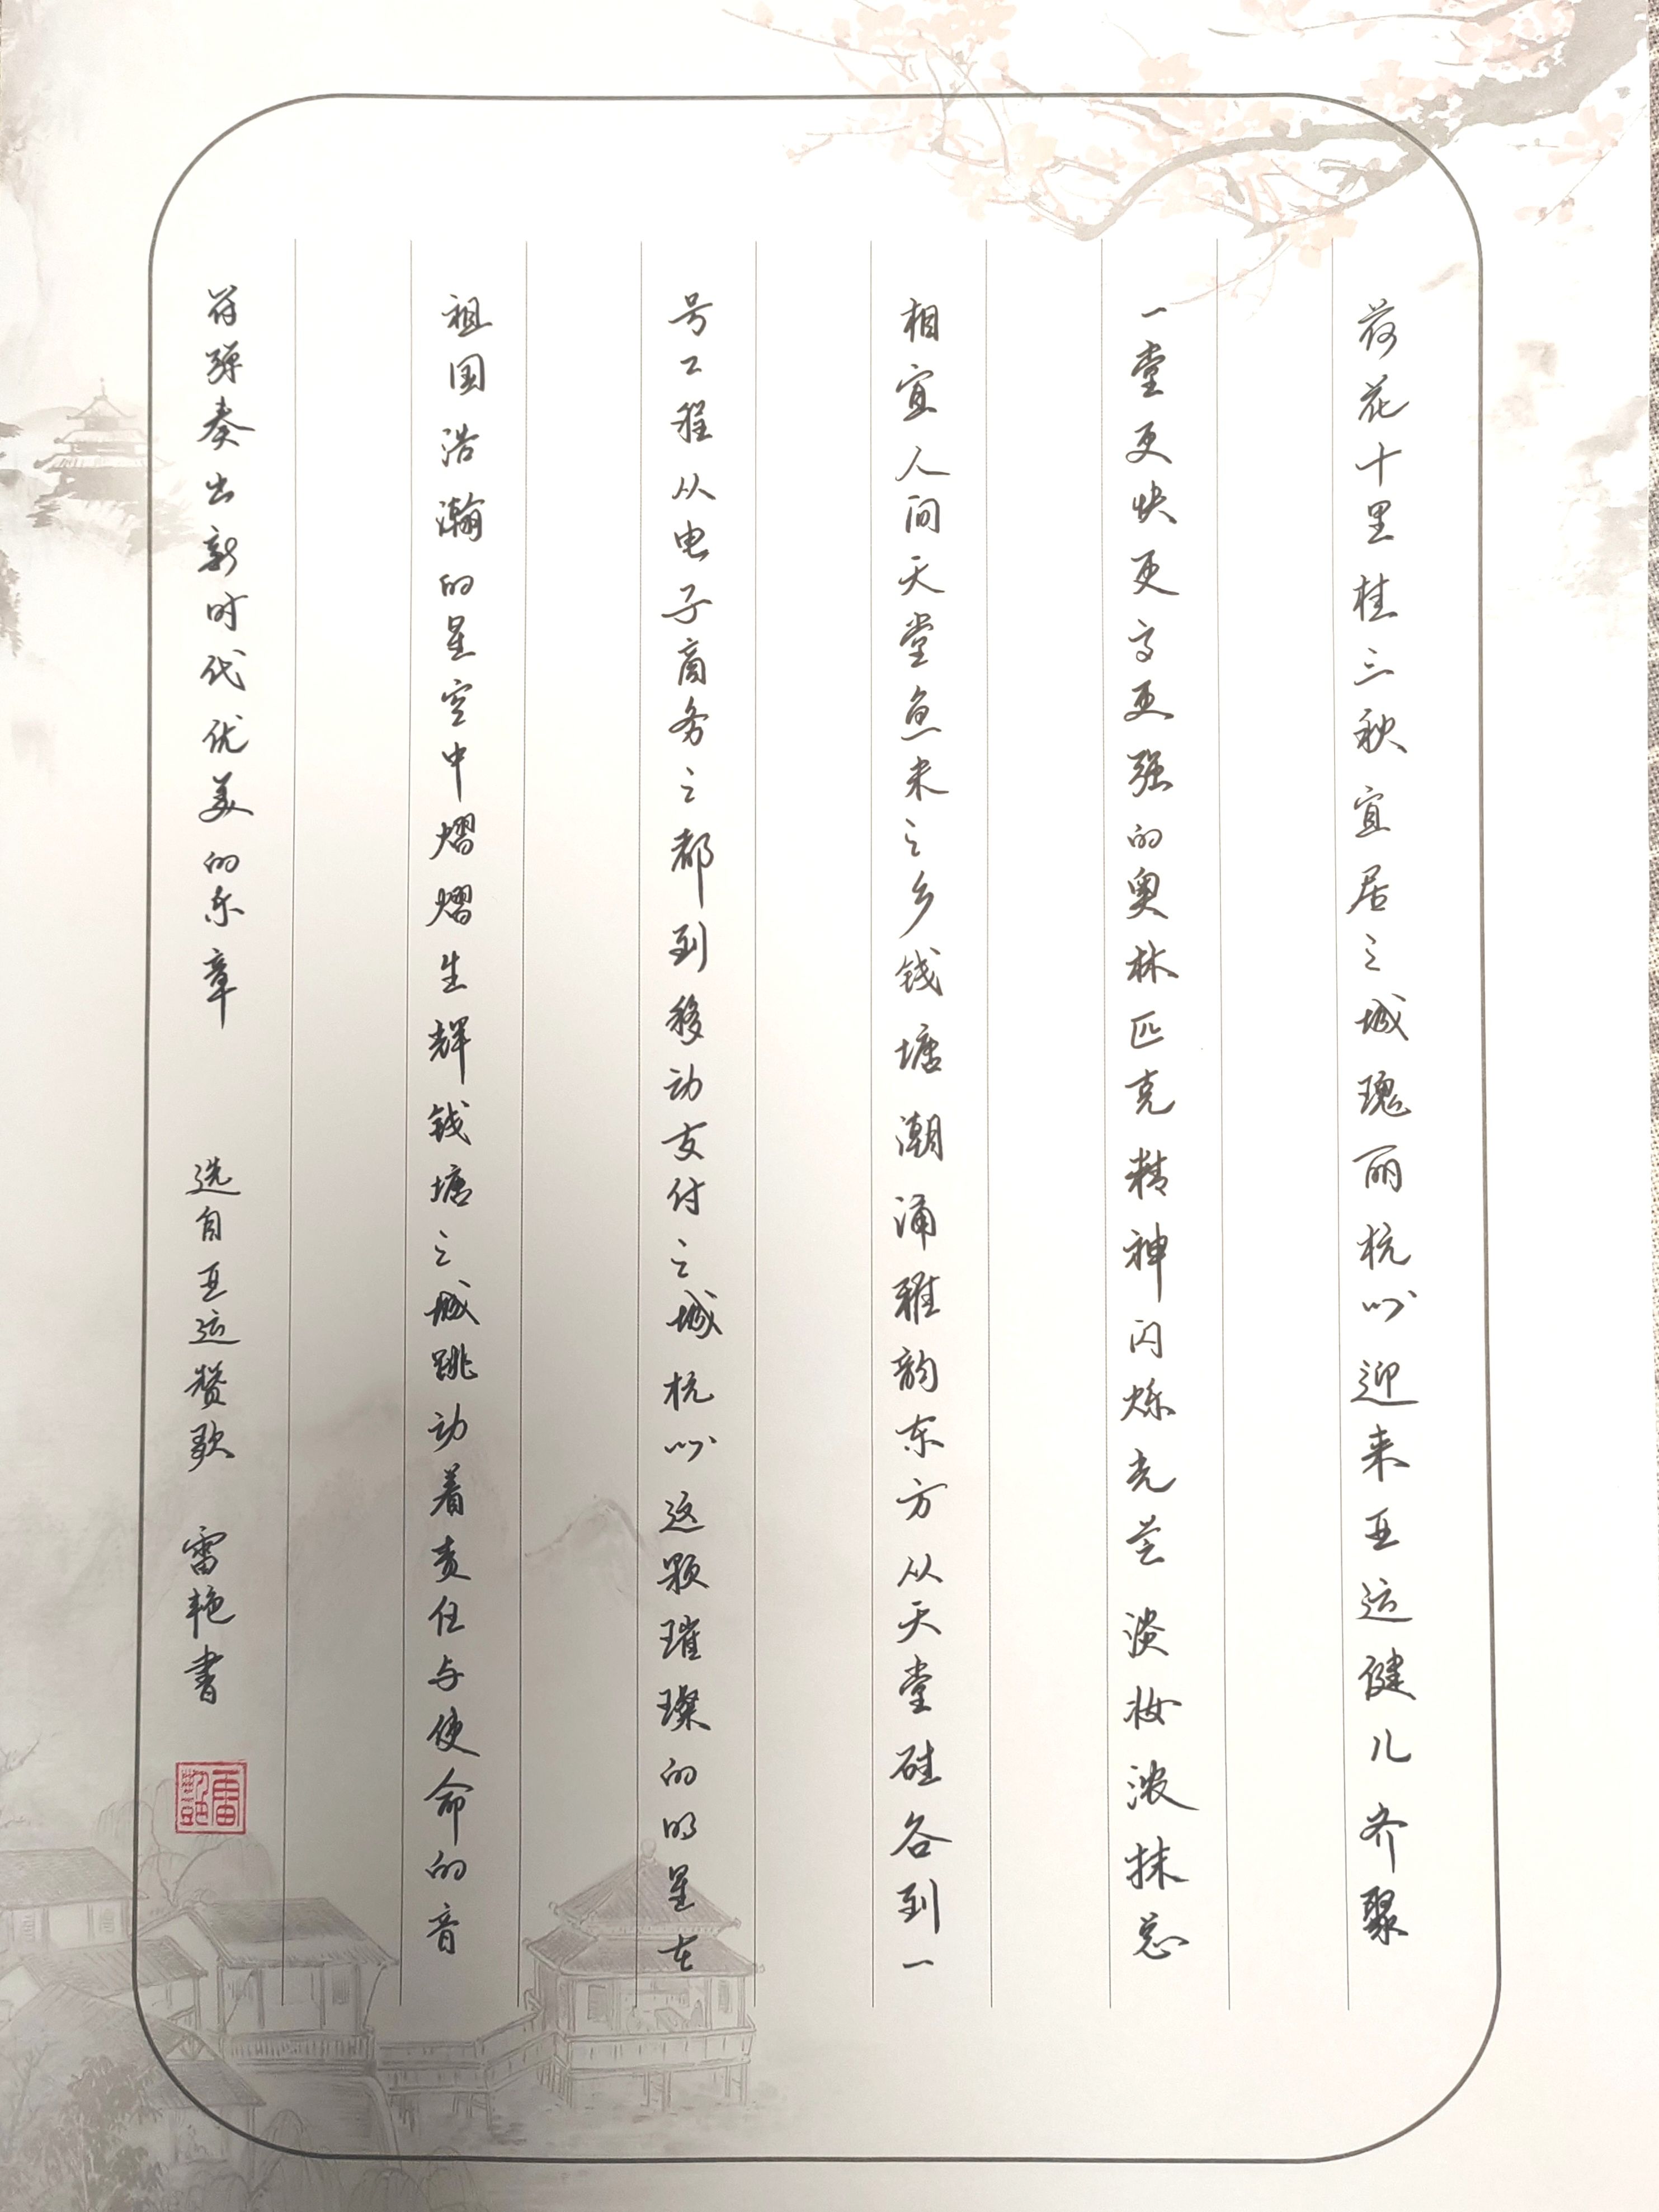 荷花十里桂三秋宜居之城瑰丽杭州迎来亚运健儿齐聚
一堂更快更高更强的奥林匹克精神闪烁光芒淡妆浓抹总
相宜人间天堂鱼米之乡钱塘潮涌雅韵东方从天堂硅谷到一
号工程从电子商务之都到移动支付之城杭州这颗璀璨的明星在
祖国浩瀚的星空中熠熠生辉钱塘之城跳动着责任与使命的音
符弹奏出新时代优美的乐章 选自亚运赞歌 雷艳书
雷艷